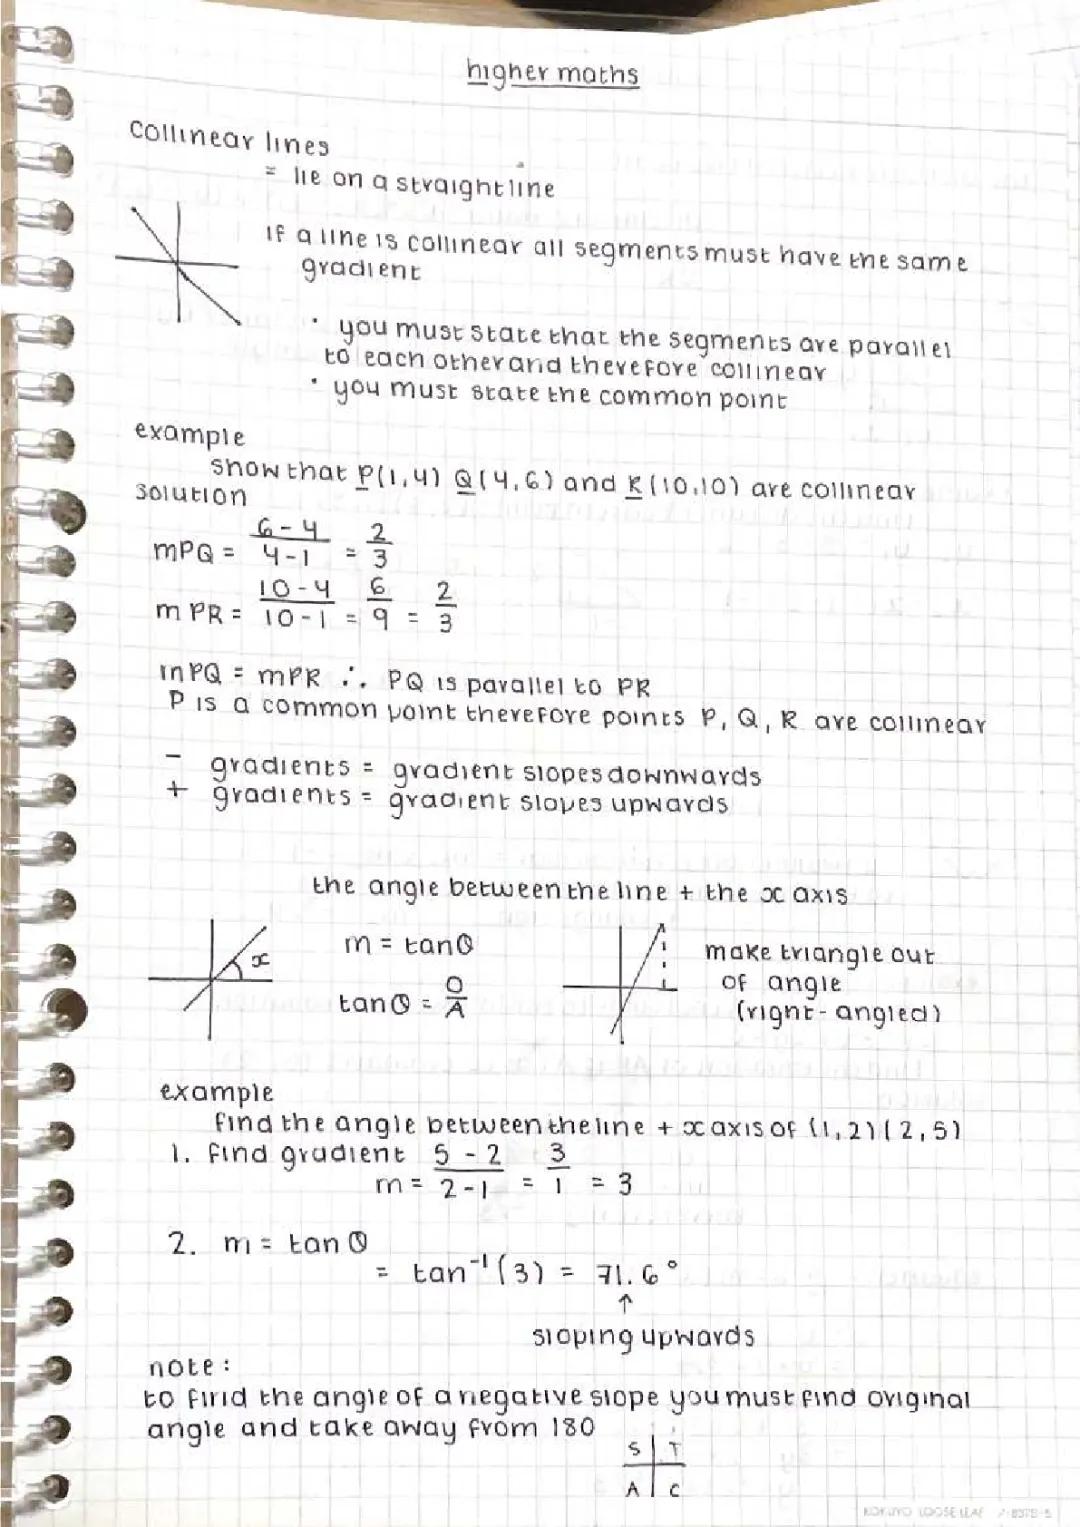 higher maths
collinear lines
= lie on a straight line
if a line is collinear all segments must have the same
gradient
• you must state that the segments are parallel
to each other and therefore collinear
• you must state the common point
example
show that P(1,4) Q(4,6) and R(10,10) are collinear
solution
mPQ = 6-4/4-1 = 2/3
mPR = 10-4/10-1 = 6/9 = 2/3
mPQ = mPR ∴ PQ is parallel to PR
P is a common point therefore points P, Q, R are collinear
- gradients = gradient slopes downwards
+ gradients = gradient slopes upwards
the angle between the line + the x axis
x
m = tanθ
tanθ = O/A
make triangle out
of angle
(right-angled)
example
find the angle between the line + x axis of (1,2) (2,5)
1. find gradient
m = 5-2/2-1 = 3/1 = 3
2. m = tanθ
= tan⁻¹(3) = 71.6°
↑
sloping upwards
note:
to find the angle of a negative slope you must find original
angle and take away from 180
S T
A C
KOKUYO LOOSE LEAF